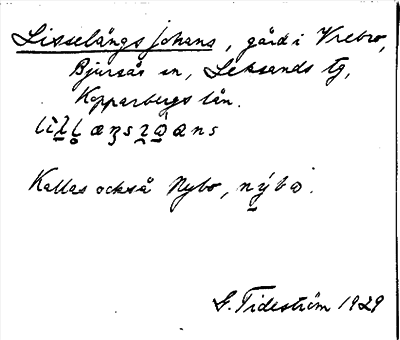 Lisselängs johans, gård i Vrebro,
Bjursås sn, Leksands tg,
Kopparbergs län.
Kallas också Nybo,
G. Tideström 1929